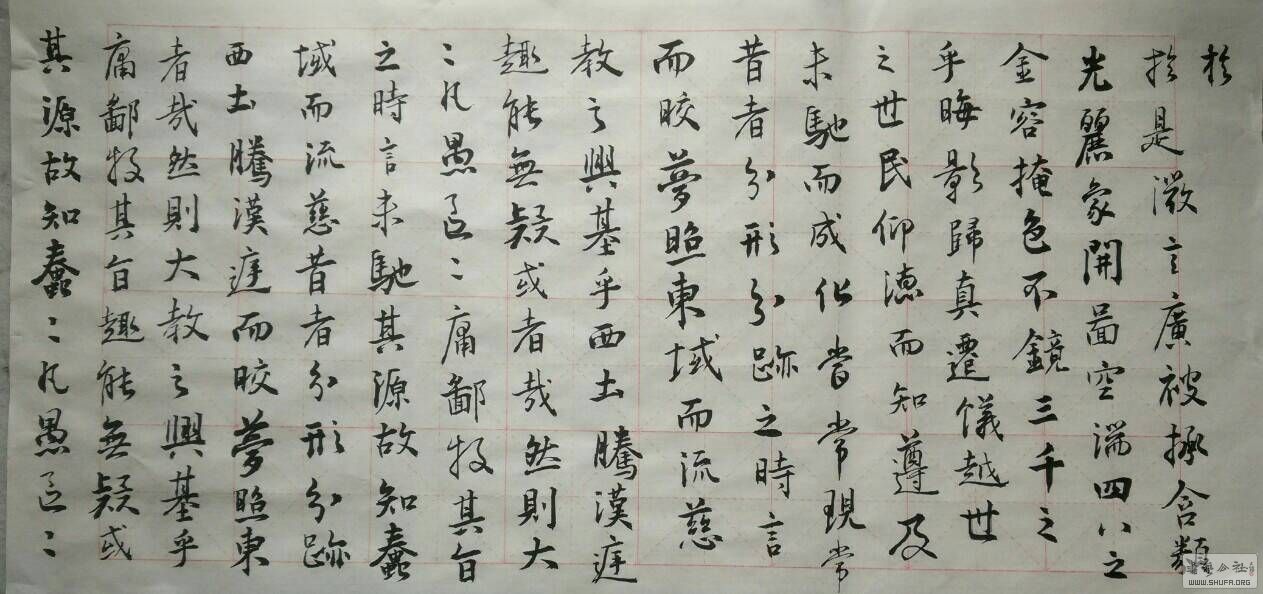 於
於是微言廣被拯含類
光麗象開啚空端四八之
金容掩色不鏡三千之
乎晦影歸真遷儀越世
之世民仰德而知遵及
未馳而成化當常現常
昔者分形分跡之時言
而皎夢照東域而流慈
教之興基乎西土騰漢庭
趣能無疑或者哉然則大
〻凡愚區〻庸鄙投其旨
之時言未馳其源故知蠢
域而流慈昔者分形分跡
西土騰漢庭而皎夢照東
者哉然則大教之興基乎
庸鄙投其旨趣能無疑或
其源故知蠢〻凡愚區〻
WWW.SHUFA.ORG